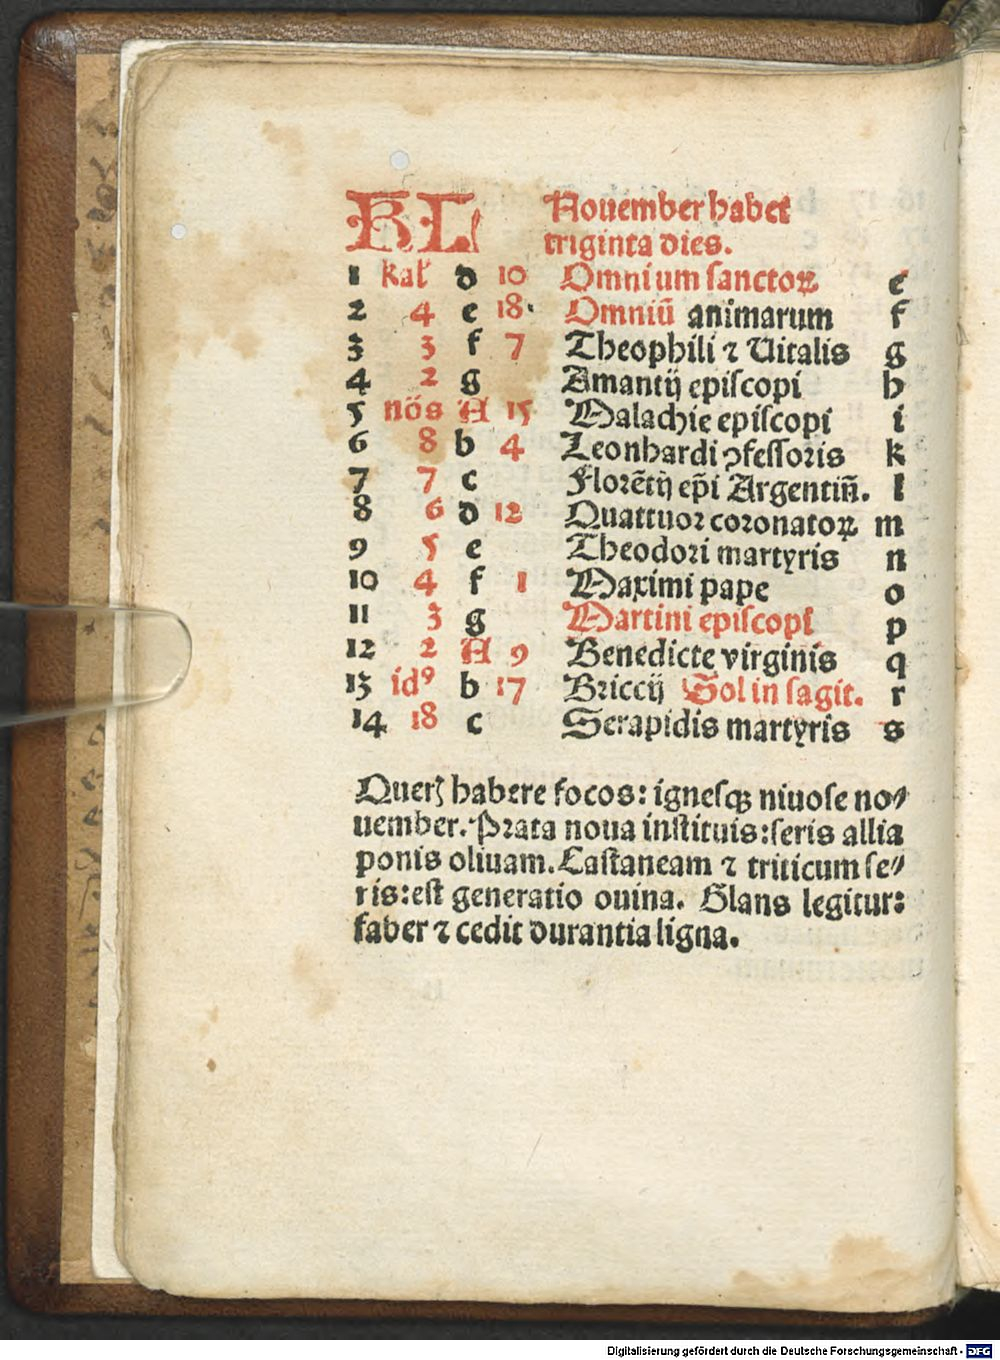 KL Nouember habet
triginta dies.
1 kal̄ d 10 Omnium sanctoꝝ e
2 4 e 18· Omniū animarum f
3 3 f 7 Theophili ⁊ Uitalis g
4 2 g Amantij episcopi h
5 nōs A 15 Malachie episcopi i
6 8 b 4 Leonhardi ꝯfessoris k
7 7 c Florētij ep̄i Argentin̄. l
8 6 d 12 Quattuor coronatoꝝ m
9 5 e Theodori martyris n
10 4 f 1 Maximi pape o
11 3 g Martini episcopi p
12 2 A 9 Benedicte virginis q
13 idꝰ b 17 Briccij Sol in sagit. r
14 18 c Serapidis martyris s
Querꝭ habere focos: ignesqꝫ niuose no⸗
uember. Prata noua instituis: seris allia
ponis oliuam. Castaneam ⁊ triticum se⸗
ris: est generatio ouina. Glans legitur:
faber ⁊ cedit durantia ligna.
Digitalisierung gefördert durch die Deutsche Forschungsgemeinschaft - DFG